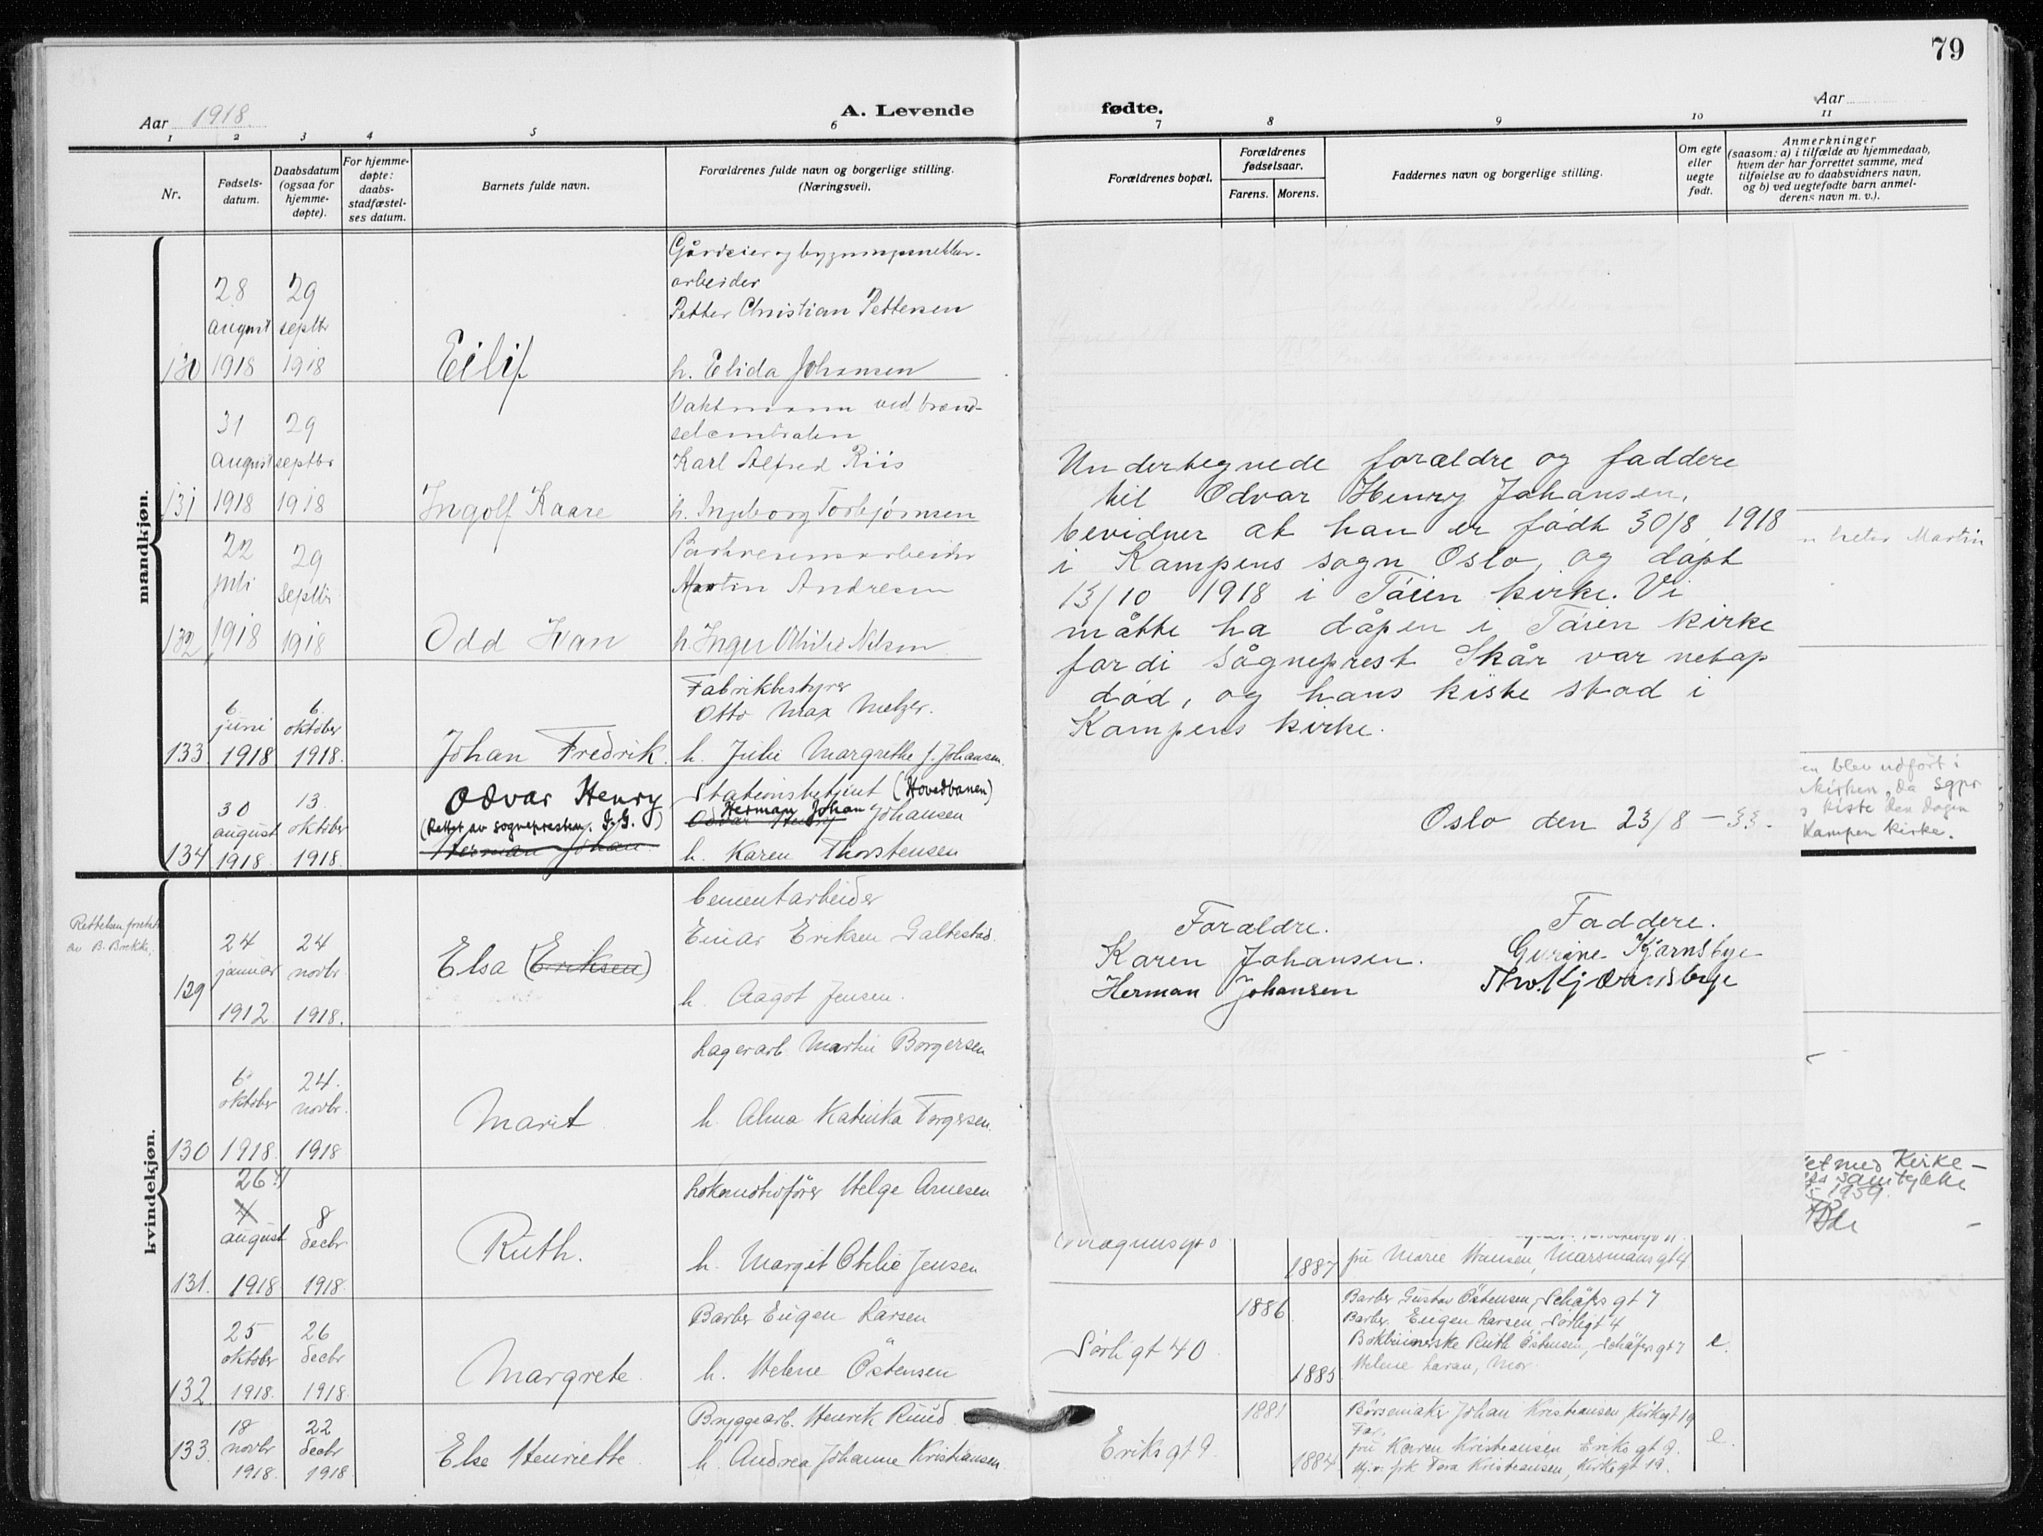 79
Aar 1918.
A. Levende
fødte.
Aar
1 2 3 4 5 6 7 8 9 10 11
Nr.
Fødsels-
datum.
Daabsdatum
(ogsaa for
hjemme-
døpte).
For hjemme-
døpte:
daabs-
stadfæstel-
ses datum.
Barnets fulde navn.
Forældrenes fulde navn og borgerlige stilling.
(Næringsvei).
Forældrenes bopæl.
Forældrenes
fødselsaar.
Farens. Morens.
Faddernes navn og borgerlige stilling.
Om egte
eller
uegte
født.
Anmerkninger
(saasom: a) i tilfælde av hjemmedaab,
hvem der har forrettet samme, med
tilføielse av to daabsvidners navn,
og b) ved uegtefødte barn anmel-
derens navn m. v.).
mandkjøn.
130
28
august
1918
29
septbr
1918
Eilif
Gårdeier og
arbeider
Petter Christian Pettersen
h. Elida Johansen
131
31
august
1918
29
septbr
1918
Ingolf Kaare
Vaktmann ved brænd-
selcentralen
Karl Alfred Riis
h. Ingeborg Torbjørnsen
132
22
juli
1918
29
septbr
1918
Odd Ivan
Martin Andresen
h. Inger Othilie Nilsen
133
6.
juni
1918
6.
oktober
1918.
Johan Fredrik.
Fabrikbestyrer
Otto Max Metzer.
h. Julie Margrethe f. Johansen.
134
30
august
1918.
13.
oktober
1918.
Odvar Henry
(Rettet av sognepresten. I. G.)
Herman Johan.
Stationsbetjent (Hovedbanen)
Herman Johan
Odvar Henry Johansen
h. Karen Thorstensen
kvindekjøn.
Rettelsen foretat
av B. Brekke,
129
24
januar
1912
24
novbr
1918.
Elsa (Eriksen)
Cementarbeider
Einar Eriksen Galtestad.
h. Aagot Jensen.
130
6.
oktober
1918.
24.
novbr.
1918
Marit
Lagerarb. Martin Borgersen
h. Alma Katinka Torgersen.
131.
26
august
1918
8
decbr
1918.
Ruth.
Lokomotivfører Helge Arnesen
h. Margit Otilie Jensen
132
25
oktober
1918.
26
decbr
1918.
Margrete.
Barber Eugen Larsen
h. Helene Östensen
133.
18
novbr
1918.
22
decbr
1918.
Else Henriette.
Bryggearb. Henrik Ruud.
h. Andrea Johanne Kristiansen.
Undertegnede forældre og faddere
til Odvar Henry Johansen,
bevidner at han er født 30/8 1918
i Kampens sogn Oslo, og døpt
13/10 1918 i Tøien kirke. Vi
måtte ha dåpen i Tøien kirke
fordi sogneprest Skår var netop
død, og hans kiste stod i
Kampens kirke.
Oslo den 23/8 – 33.
Forældre.
Karen Johansen.
Herman Johansen
Faddere.
Gurine Kjærnsbye
Tho. Kjærnsbye
n heter Martin
en blev utført i
kirken, da Sgpr
s kiste den dagen
Kampen kirke.
et med Kirke-
samtykke
1959.
Magnusgt 8
1887
fru Marie Hansen, Marsmans gt 4
Sörligt 40
1886
1885
Barber Gustav Östensen, Schäfers gt 7
Barber. Eugen Larsen, Sörligt 4
Bokbinderske Ruth Östensen, Schäfers gt 7
Helene Larsen, Mor.
e.
Eriks gt 9.
1881
1884
Börsemaker Johan Kristiansen, Kirkegt 19
Far.
fru Karen Kristiansen Eriks gt 9.
Hj.v. frk Tora Kristiansen, Kirkegt 19.
e.